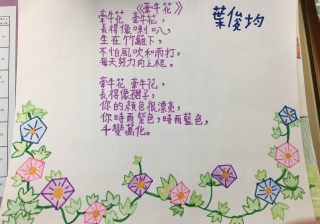 《牽牛花》
葉俊均
牽牛花 牽牛花，
長得像喇叭，
生在竹籬下，
不怕風吹和雨打，
每天努力向上爬。
牽牛花 牽牛花，
長得像裙子，
你的顏色很漂亮，
你時而紫色，時而藍色，
千變萬化。